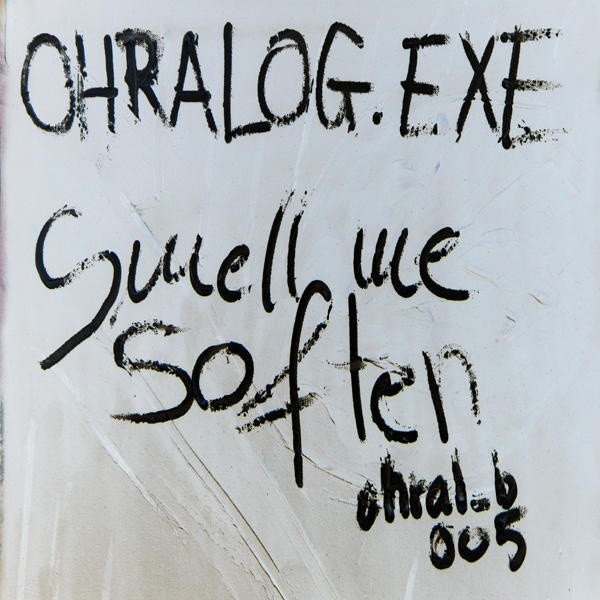 OHRALOG.EXE
Smell me
Soften
ohral_b
005